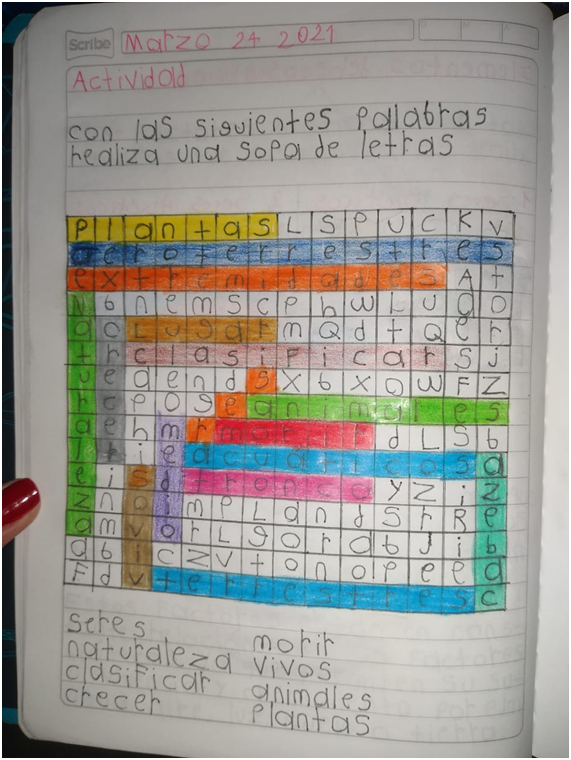 Scribe
Marzo 24 2021
Actividad
con las siguientes palabras
realiza una sopa de letras
P l a n t a s L S P U C K V
a e r o t e r r e s t r e s
e x t r e m i d a d e s A t
N b n e m s c p h w L u g O
a o L u g a r m Q d t Q e r
t r c l a s i f i c a r S j
u e a e n d s X b X O W F Z
r c e o g e a n i m a l e s
a e h m r m o r i r d L S b
l r i e a c u a t i c o s a
e i s d t r o n c o y Z i z
z n o i m p L a n d S r R e
a m v o r L g o r a b J i b
a b i c z v t o n o p e e a
F d v t e r r e s t r e s c
seres
morir
naturaleza vivos
clasificar animales
crecer plantas